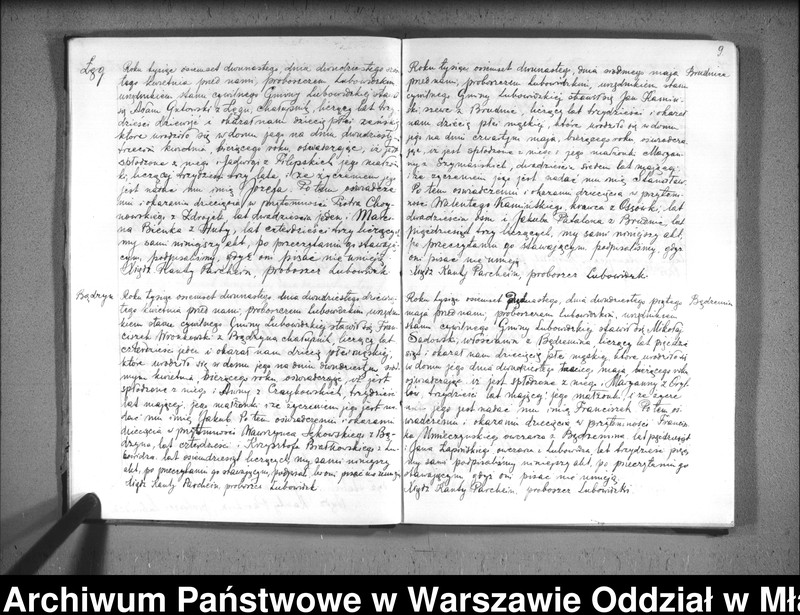 9
Łęg
Roku tysiąc osiemset dwunastego, dnia dwudziestego
tego kwietnia przed nami, proboszczem Lubowidzkim
urzędnikiem stanu cywilnego Gminy Lubowidzkiej stawił
się Adam z Łęgu, chałupnik, liczący lat trzy
dzieści dziewięć i okazał nam dziecię płci żeńskiej
które urodziło się w domu jego na dniu dwudziestym
trzecim kwietnia, bieżącego roku, oświadczając, iż jest
spłodzone z niego i Jadwigi z jego małżonki
liczącej trzydzieści trzy lata, i że życzeniem jego
jest nadać mu imię. Po tem oświadczeniu
i okazaniu dziecięcia w przytomności Piotra
z lat dwadzieścia jeden i
Bieńka z Huty, lat czterdzieści trzy liczących
my sami niniejszy akt, po przeczytaniu go stawają
cym, podpisaliśmy, gdyż oni pisać nie umieją.
Ksiądz Kanty Parchein, proboszcz Lubowidzk
Bądzyn
Roku tysiąc osiemset dwunastego, dnia dwudziestego
tego kwietnia przed nami, proboszczem Lubowidzkim, urzędni
kiem stanu cywilnego Gminy Lubowidzkiej stawił się Fran
ciszek Wronkowski z Bądzyna chałupnik, liczący lat
czterdzieści jeden i okazał nam dziecię płci męskiej,
które urodziło się w domu jego na dniu dwudziestym
kwietnia, bieżącego roku oświadczając, iż jest
spłodzone z niego i Anny z Czaykowskich, trzydzieści
lat mającej, jego małżonki i że życzeniem jego jest na
dać mu imię Jakub. Po tem oświadczeniu i okazaniu
dziecięcia w przytomności Wawrzyńca z Bą
dzyna, lat czterdzieści i Krzysztofa z Lu
bowidza, lat osiemdziesiąt liczących, my sami niniejszy
akt, po przeczytaniu go stawającym, podpisal., bo oni pisać nie umieją.
Ksiądz Kanty Parchein, proboszcz Lubowidzk
Brudnice
Roku tysiąc osiemset dwunastego, dnia siódmego maja
przed nami, proboszczem Lubowidzkim, urzędnikiem stanu
cywilnego Gminy Lubowidzkiej stawił się Jan Kamiń
ski szewc z Brudnic, liczący lat trzydzieści i okazał
nam dziecię płci męskiej, które urodziło się w domu
jego na dniu czwartym maja, bieżącego roku oświadcza
jąc, iż jest spłodzone z niego i jego małżonki Maryan
ny z Szymańskich, dwadzieścia siedem lat mającej
i że życzeniem jego jest nadać mu imię Stanisław.
Po tem oświadczeniu i okazaniu dziecięcia w przytom
ności Walentego Kamińskiego, krawca z Osówki, lat
dwadzieścia osm i Jakuba z Brudnic, lat
pięćdziesiąt trzy liczących, my sami niniejszy akt,
po przeczytaniu go stawającym podpisaliśmy, gdyż
oni pisać nie umieją.
Ksiądz Kanty Parchein, proboszcz Lubowidzk.
Bądzenin
Roku tysiąc osiemset dwunastego, dnia dwudziestego piątego
maja przed nami, proboszczem Lubowidzkim, urzędnikiem
stanu cywilnego Gminy Lubowidzkiej stawił się Mikołaj
Sadowski, włościanin z Bądzenina liczący lat pięćdzie
siąt i okazał nam dziecięcię płci męskiej, które urodziło się
w domu jego dnia dwudziestego maja, bieżącego roku
oświadczając iż jest spłodzone z niego i Maryanny z
lat trzydzieści lat mającej jego małżonki i że życze
niem jego jest nadać mu imię Franciszek. Po tem oś
wiadczeniu i okazaniu dziecięcia w przytomności Francisz
ka owczarza z Bądzenina lat pięćdziesiąt
i Jana Łapińskiego owczarza z Lubowidza, lat trzydzieści pięć,
my sami podpisaliśmy niniejszy akt, po przeczytaniu go
stawającym gdyż oni pisać nie umieją.
Ksiądz Kanty Parchein, proboszcz Lubowidzki
Archiwum Państwowe w Warszawie Oddział w Mł